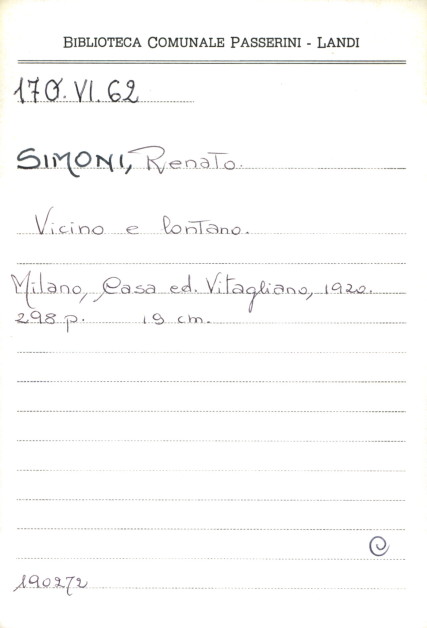 BIBLIOTECA COMUNALE PASSERINI - LANDI
170.VI.62
SIMONI, Renato.
Vicino e lontano.
Milano, Casa ed. Vitagliano, 1920.
298 p. 19 cm.
190272